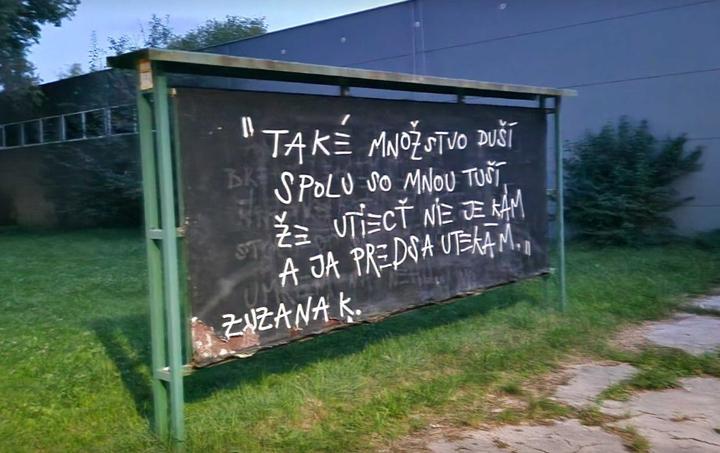 "TAKÉ MNOŽSTVO DUŠÍ
SPOLU SO MNOU TUŠÍ,
ŽE UTIECŤ NIE JE KAM
A JA PREDSA UTEKÁM."
ZUZANA K.